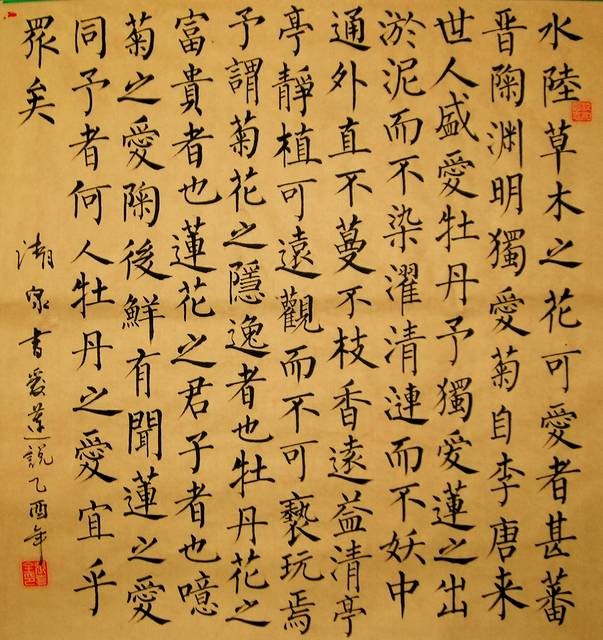 水陸草木之花可愛者甚蕃
晋陶渊明獨愛菊自李唐来
世人盛愛牡丹予獨愛蓮之出
淤泥而不染濯清漣而不妖中
通外直不蔓不枝香遠益清亭
亭靜植可遠觀而不可褻玩焉
予謂菊花之隱逸者也牡丹花之
富貴者也蓮花之君子者也噫
菊之愛陶後鮮有聞蓮之愛
同予者何人牡丹之愛宜乎
眾矣
湖泉書愛蓮說乙酉年